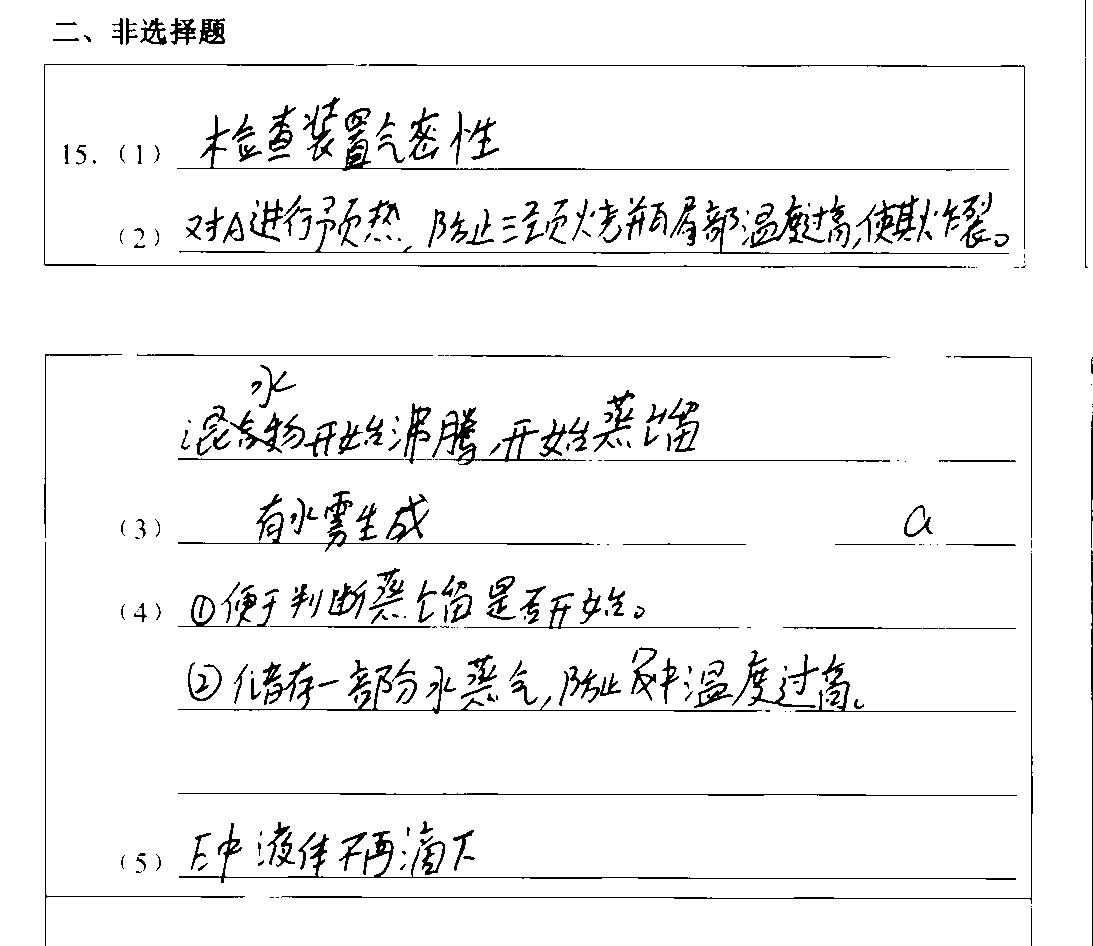 二、非选择题
15.（1）检查装置气密性
（2）对A进行预热,防止三颈烧瓶局部温度过高,使其炸裂。
水开始沸腾,开始蒸馏
（3）有水雾生成 a
（4）①便于判断蒸馏是否开始。
②储存一部分水蒸气,防止中温度过高。
（5）E中液体不再滴下